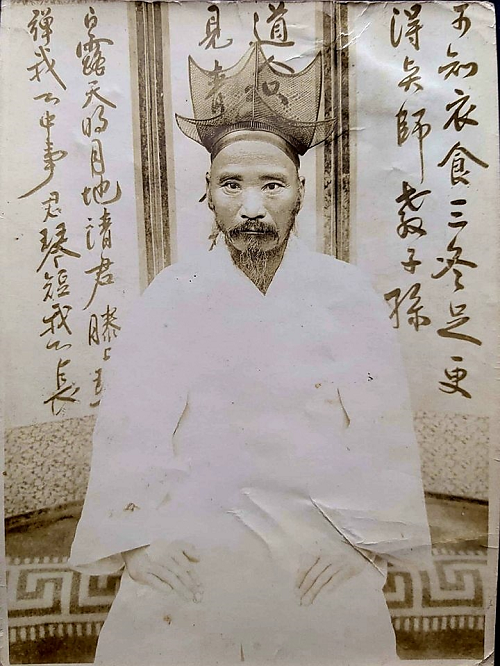 不知衣食三冬足更
得師教子孫
道
見
白露天明月地請君膝上琴
彈我心中事君琴短我心長